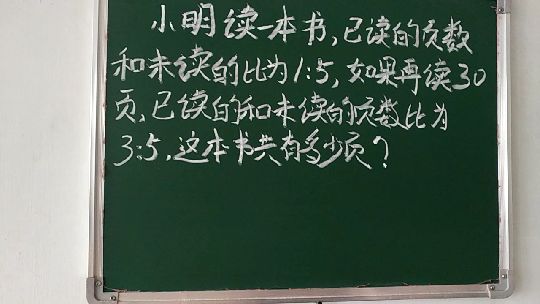 小明读一本书,已读的页数
和未读的比为1:5,如果再读30
页,已读的和未读的页数比为
3:5,这本书共有多少页?